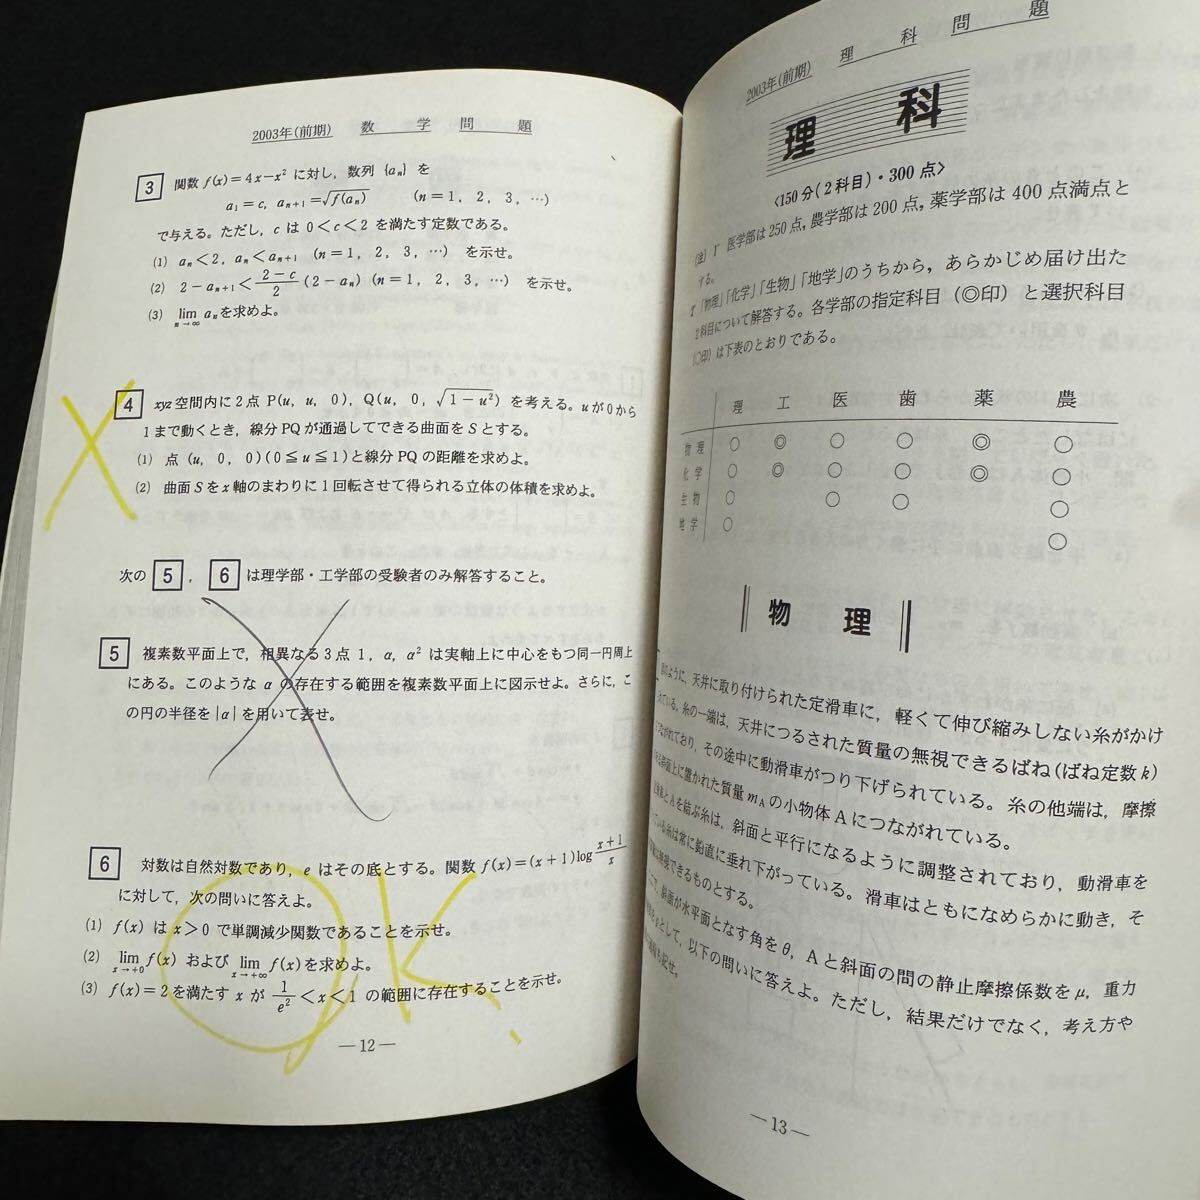 2003年(前期) 数学問題
3 関数 f(x)=4x−x² に対し, 数列 {aₙ} を
a₁=c, aₙ₊₁=√f(aₙ) (n=1, 2, 3, …)
で与える。ただし, c は 0<c<2 を満たす定数である。
(1) aₙ<2, aₙ<aₙ₊₁ (n=1, 2, 3, …) を示せ。
(2) 2−aₙ₊₁<(2−c)/2 (2−aₙ) (n=1, 2, 3, …) を示せ。
(3) lim n→∞ aₙ を求めよ。
4 xyz 空間内に2点 P(u, u, 0), Q(u, 0, √1−u²) を考える。u が0から
1まで動くとき, 線分PQが通過してできる曲面を S とする。
(1) 点 (u, 0, 0) (0≦u≦1) と線分PQの距離を求めよ。
(2) 曲面 S を x 軸のまわりに1回転させて得られる立体の体積を求めよ。
次の 5, 6 は理学部・工学部の受験者のみ解答すること。
5 複素数平面上で, 相異なる3点 1, α, α² は実軸上に中心をもつ同一円周上
にある。このような α の存在する範囲を複素数平面上に図示せよ。さらに, こ
の円の半径を |α| を用いて表せ。
6 対数は自然対数であり, e はその底とする。関数 f(x)=(x+1)log (x+1)/x
に対して, 次の問いに答えよ。
(1) f(x) は x>0 で単調減少関数であることを示せ。
(2) lim x→+0 f(x) および lim x→+∞ f(x) を求めよ。
(3) f(x)=2 を満たす x が 1/e²<x<1 の範囲に存在することを示せ。
OK
―12―
2003年(前期) 理科問題
理科
<150分(2科目)・300点>
(注) 1° 医学部は250点, 農学部は200点, 薬学部は400点満点と
する。
2° 「物理」「化学」「生物」「地学」のうちから, あらかじめ届け出た
2科目について解答する。各学部の指定科目(◎印)と選択科目
(○印)は下表のとおりである。
理 工 医 歯 薬 農
物理 ○ ◎ ○ ○ ◎ ○
化学 ○ ◎ ○ ○ ◎ ○
生物 ○ ○ ○ ○
地学 ○ ○
物理
のように, 天井に取り付けられた定滑車に, 軽くて伸び縮みしない糸がかけ
れている。糸の一端は, 天井につるされた質量の無視できるばね(ばね定数 k)
つながれており, その途中に動滑車がつり下げられている。糸の他端は, 摩擦
る斜面上に置かれた質量 mA の小物体Aにつながれている。
とAを結ぶ糸は, 斜面と平行になるように調整されており, 動滑車を
ている糸は常に鉛直に垂れ下がっている。滑車はともになめらかに動き, そ
できるものとする。
斜面が水平面となす角を θ, Aと斜面の間の静止摩擦係数を μ, 重力
として, 以下の問いに答えよ。ただし, 結果だけでなく, 考え方や
も記せ。
―13―